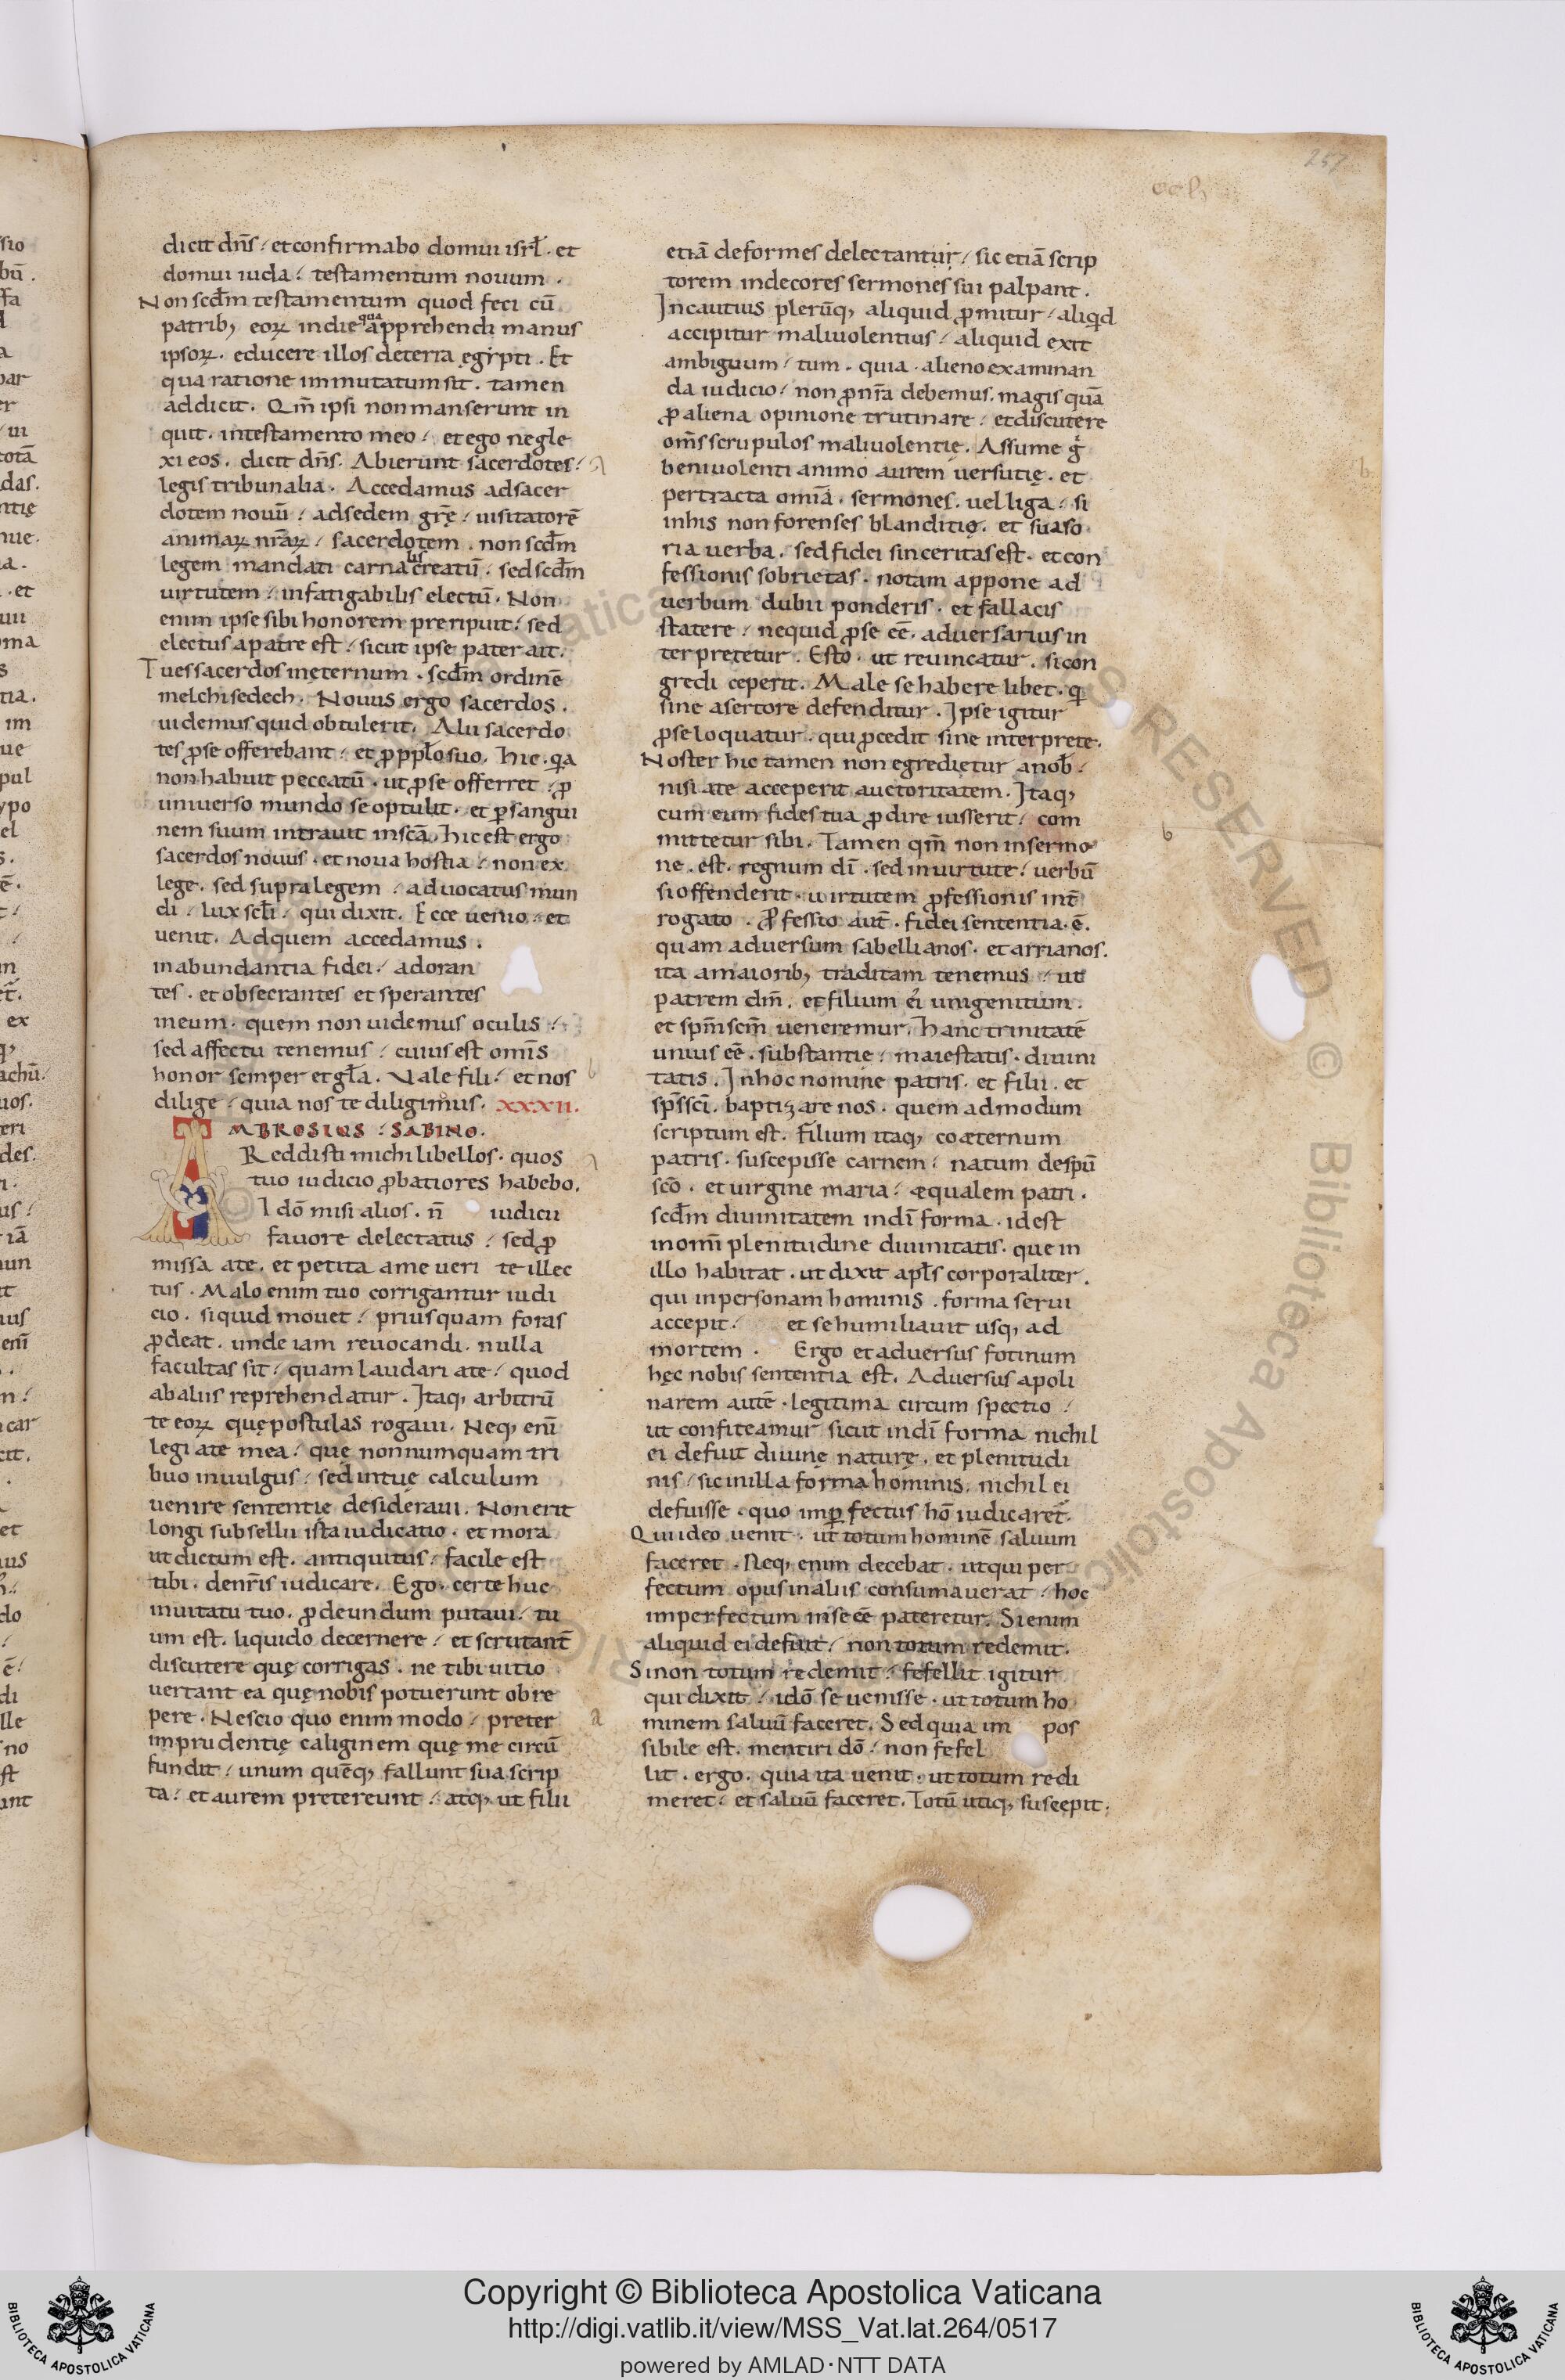 257
ccli
dicit dñs / et confirmabo domui isrł . et
domui iuda / testamentum nouum .
Non scdm̄ testamentum quod feci cū
patrib; eoꝝ in die qua apprehendi manus
ipsoꝝ . educere illos de terra egypti . Et
qua ratione immutatum sit . tamen
addicit . Qm̄ ipsi non manserunt in
quit . in testamento meo / et ego negle
xi eos . dicit dñs . Abierunt sacerdotes /
legis tribunalia . Accedamus ad sacer
dotem nouū / ad sedem grę̄ / uisitatorē
animaꝝ nr̄aꝝ / sacerdotem . non scdm̄
legem mandati carnalis creatū / sed scdm̄
uirtutem / infatigabilis electū . Non
enim ipse sibi honorem preripuit / sed
electus a patre est / sicut ipse pater ait .
Tu es sacerdos in ęternum . scdm̄ ordinē
melchisedech . Nouus ergo sacerdos .
uidemus quid obtulerit . Alii sacerdo
tes ꝓ se offerebant / et ꝓ ppło suo . hic . qa
non habuit peccatū . ut ꝓ se offerret / ꝓ
uniuerso mundo se optulit . et ꝑ sangui
nem suum intrauit in scā . hic est ergo
sacerdos nouus . et noua hostia / non ex
lege . sed supra legem / aduocatus mun
di / lux scłi / qui dixit . Ecce uenio . et
uenit . Ad quem accedamus .
in abundantia fidei / adoran
tes . et obsecrantes et sperantes
in eum . quem non uidemus oculis /
sed affectu tenemus / cuius est om̄is
honor semper et gła . Vale fili / et nos
dilige / quia nos te diligimus . XXXII.
AMBROSIUS : SABINO .
Reddisti michi libellos . quos
tuo iudicio ꝓbatiores habebo .
Idō misi alios . n̄ iudicii
fauore delectatus / sed ꝓ
missa a te . et petita a me ueri te illec
tus . Malo enim tuo corrigantur iudi
cio . si quid mouet / prius quam foras
ꝓdeat . unde iam reuocandi . nulla
facultas sit / quam laudari a te / quod
ab aliis reprehendatur . Itaq; arbitrū
te eoꝝ quę postulas rogaui . Neq; enī
legi a te mea / quę non numquam tri
buo in uulgus / sed in tuę calculum
uenire sententię desideraui . Non erit
longi subsellii ista iudicatio . et mora
ut dictum est . antiquitus / facile est
tibi . de nr̄is iudicare . Ego . certe huc
inuitatu tuo . ꝓdeundum putaui / tu
um est . liquido decernere / et scrutant̄
discutere quę corrigas . ne tibi uitio
uertant ea quę nobis potuerunt obre
pere . Nescio quo enim modo / preter
imprudentię caliginem quę me circū
fundit / unum quēq; fallunt sua scrip
ta / et aurem pretereunt / atq; ut filii
etiā deformes delectantur / sic etiā scrip
torem indecores sermones sui palpant .
Incautius plerūq; aliquid ꝓmitur / aliqd
accipitur maliuolentius / aliquid exit
ambiguum / tum . quia . alieno examinan
da iudicio / non ꝓ nr̄a debemus . magis quā
ꝓ aliena opinione trutinare / et discutere
om̄s scrupulos maliuolentię . Assume g
beniuolenti animo aurem uersutię . et
pertracta omīa . sermones . uelliga / si
in his non forenses blanditię . et suaso
ria uerba . sed fidei sinceritas est . et con
fessionis sobrietas . notam appone ad
uerbum dubii ponderis . et fallacis
statere / nequid ꝓ se eē . aduersarius in
terpretetur . Esto . ut reuincatur . si con
gredi ceperit . Male se habere libet . q
sine asertore defenditur . Ipse igitur
ꝓ se loquatur . qui ꝓcedit sine interprete .
Noster hic tamen non egredietur a nob /
nisi a te acceperit auctoritatem . Itaq;
cum eum fides tua ꝓdire iusserit / com
mittetur sibi . Tamen qm̄ non in sermo
ne . est . regnum dī . sed in uirtute / uerbū
si offenderit . uirtutem ꝓfessionis int̄
rogato . Ꝓfessio aut̄ . fidei sententia . ē .
quam aduersum sabellianos . et arrianos .
ita a maiorib; traditam tenemus / ut
patrem dm̄ . et filium ei unigenitum .
et spm̄ scm̄ ueneremur . Hanc trinitatē
unius eē . substantię / maiestatis . diuini
tatis . In hoc nomine patris . et filii . et
sp̄s scī . baptizare nos . quem admodum
scriptum est . Filium itaq; coæternum
patris . suscepisse carnem / natum de spū
scō . et uirgine maria / æqualem patri .
scdm̄ diuinitatem in dī forma . id est
in omī plenitudine diuinitatis . que in
illo habitat . ut dixit apłs corporaliter .
qui in personam hominis . forma serui
accepit / et se humiliauit usq; ad
mortem . Ergo et aduersus fotinum
hęc nobis sententia est . Aduersus apoli
narem autē . legitima circum spectio /
ut confiteamur sicut in dī forma nichil
ei defuit diuinę naturę . et plenitudi
nis / sic in illa forma hominis . nichil ei
defuisse . quo imꝑfectus hō iudicaret̄ .
Qui ideo uenit . ut totum hominē saluum
faceret . Neq; enim decebat . ut qui per
fectum opus in aliis consumauerat / hoc
imperfectum in se eē pateretur . Si enim
aliquid ei defuit / non totum redemit .
Si non totum redemit / fefellit igitur
qui dixit / idō se uenisse . ut totum ho
minem saluū faceret . Sed quia im pos
sibile est . mentiri dō / non fefel
lit . ergo . quia ita uenit . ut totum redi
meret / et saluū faceret . Totū utiq; suscepit .
Copyright © Biblioteca Apostolica Vaticana
http://digi.vatlib.it/view/MSS_Vat.lat.264/0517
powered by AMLAD·NTT DATA